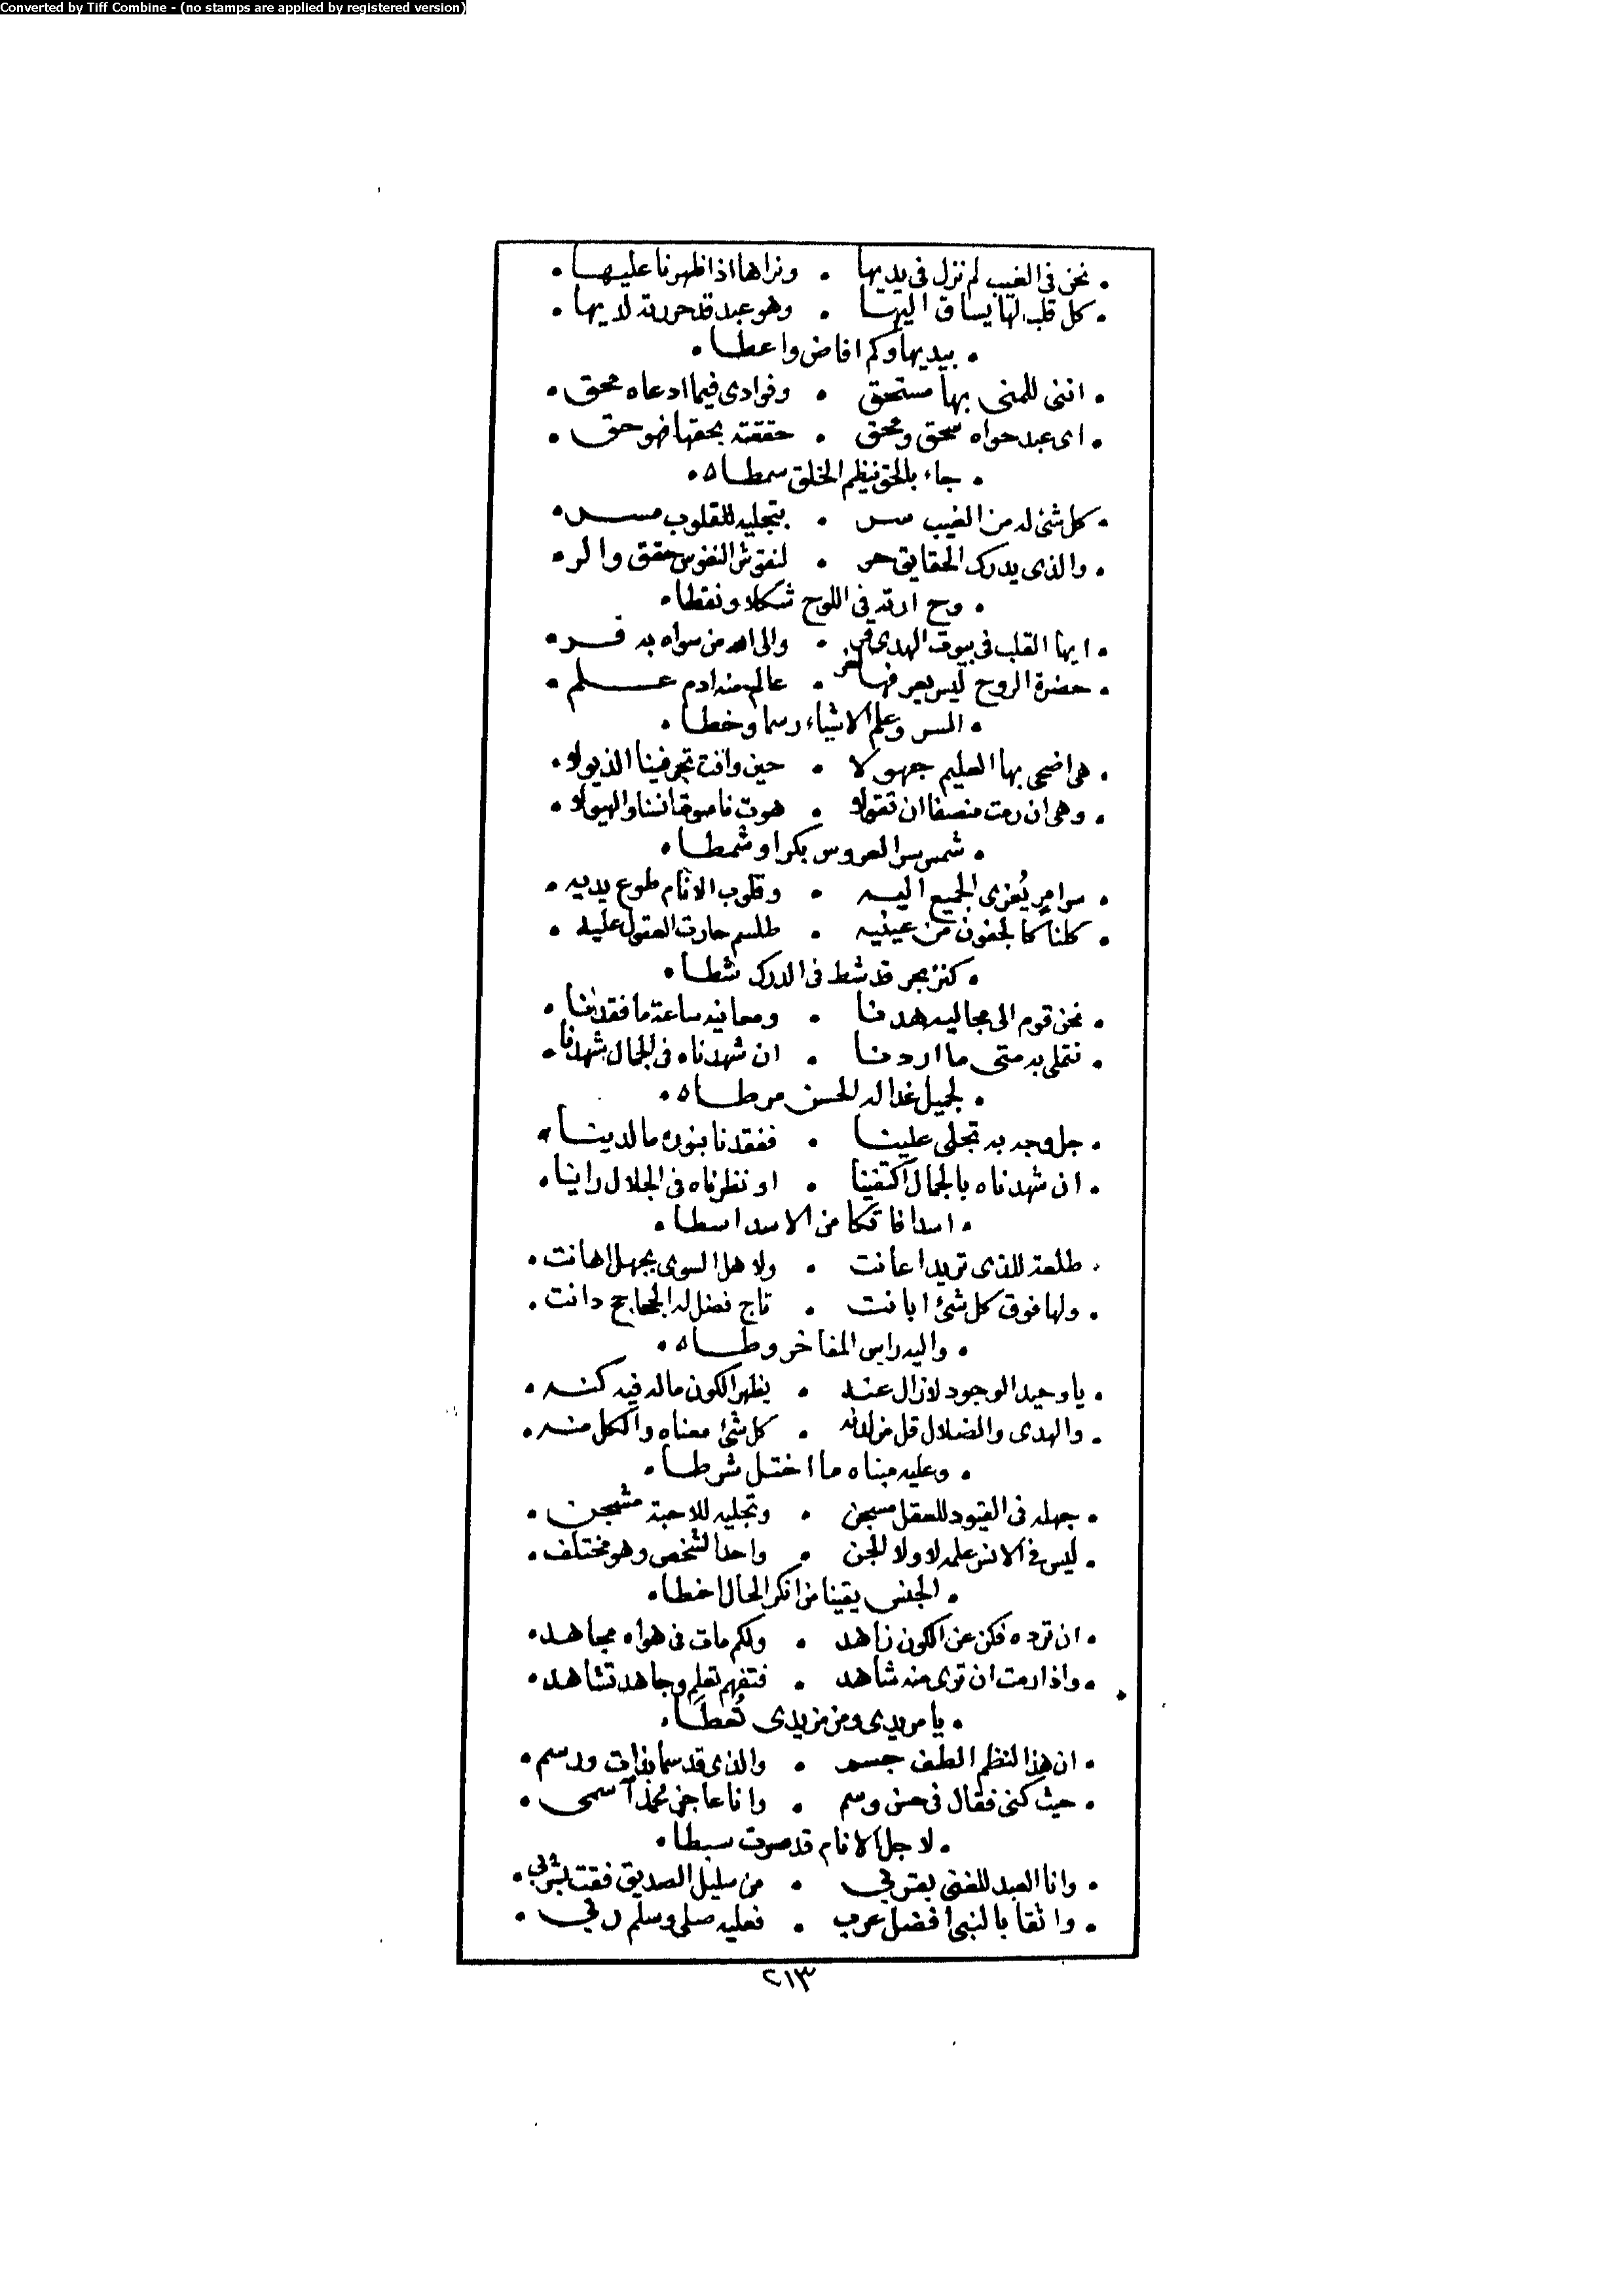 Converted by Tiff Combine - (no stamps are applied by registered version)
• نحن في الغيب لم نزل في يديها • ونراها اذا ظهرنا عليها •
• كل قلب لها يساق اليها • وهو عبد قد حررته لديها •
• بيديها وكم افاض واعطا •
• انني للمنى بها مستحق • وفوادى فيما ادعاه محق •
• اى عبد حواه سحق ومحق • حققته بحقها فهو حق •
• جاء بالحق ينظم الخلق سمطاه •
• كل شئ له من الغيب سر • بتجليه للقلوب مسر •
• والذى يدرك الحقايق حر • لنقوش النفوس حقق والر •
• وح ارته في اللوح شكلا ونقطا •
• ايها القلب في بيوت الهدى قر • والى الله من سواه به فر •
• حضرة الروح ليس يعرفها • عالم منه ادم علم •
• السر وعلم الاشياء رسما وخطا •
• هى اضحى بها العليم جهولا • حين وافت تجر فينا الذيولا •
• وهى ان رمت منصفا ان تقولا • هوت ناسوتنا والهيولا •
• شمس سر العروس بكرا وشمطا •
• سر امر يُعزى الجميع اليه • وقلوب الانام طوع يديه •
• كلنا كالجفون من عينيه • طلسم حارت العقول عليه •
• كنز بحر قد شط في الدرك شطا •
• نحن قوم الى مجاليه هدنا • ومعانيه ساعة ما فقدنا •
• نتملى به متى ما اردنا • ان شهدناه في الجمال شهدنا •
• لجميل غدا له الحسن مرطاه •
• جل وجه به تجلى علينا • ففقدنا بنوره ما لدينا •
• ان شهدناه بالجمال اكتفينا • او نظرناه في الجلال راينا •
• اسدا فاتكا من الاسد اسطا •
• طلعة للذى تريد اعانت • ولاهل السوى بجهل اهانت •
• ولها فوق كل شئ ابانت • تاج فضل له الجحاجح دانت •
• واليه راس المفاخر وطاه •
• يا وحيد الوجود لازال عنه • يظهر الكون ماله فيه كنه •
• والهدى والضلال قل من لدنه • كل شئ معناه والكل منه •
• وعليه مبناه ما اختل شرطا •
• جهله في القيود للعقل سجن • وتجليه للاحبة شجن •
• ليس في الانس علمه لا ولا الجن • واحد الشخص وهو مختلف •
• الجنس يقينا من انكر الحال اخطا •
• ان ترده فكن عن الكون زاهد • ولكم مات في هواه مجاهد •
• واذا رمت ان ترى منه شاهد • فتفهم تعلم وجاهد تشاهد •
• يا مريدى ومن مزيدى تُعطَا •
• ان هذا النظم الطف جسم • والذى قد سما بذات ورسم •
• حيث كنى فقال في حسن وسم • وانا عاجز محمد اسمى •
• لاجل الانام قد صرت سبطا •
• وانا العبد للغنى بقربي • من سليل الصديق فقت بشربي •
• واثقا بالنبي افضل عرب • فعليه صلى وسلم ربي •
٢١٣